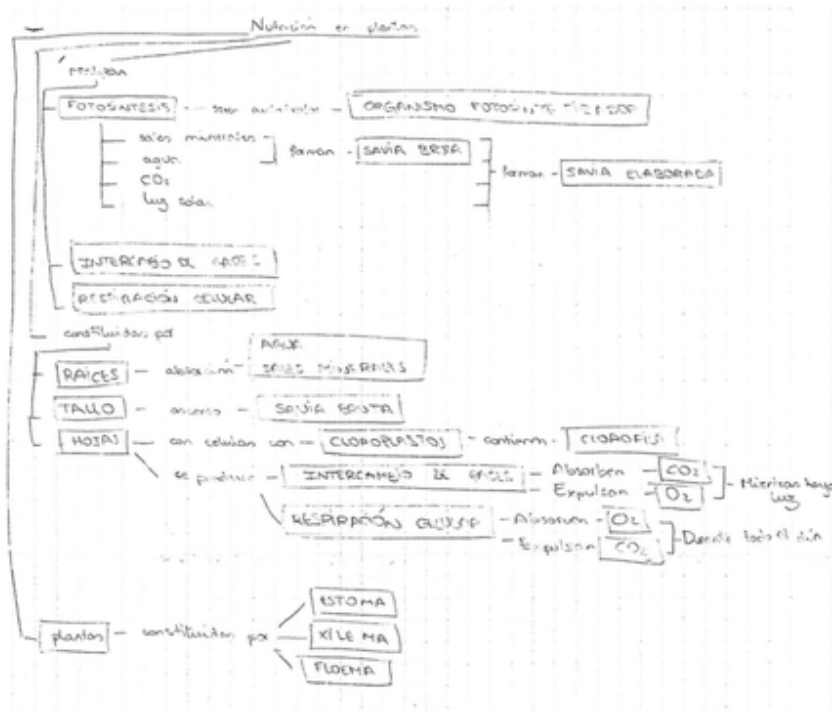 Nutrición en plantas
realizan
FOTOSÍNTESIS - son autótrofos - ORGANISMO FOTOSINTETIZADOR
sales minerales
agua
forman - SAVIA BRUTA
CO2
luz solar
forman - SAVIA ELABORADA
INTERCAMBIO DE GASES
RESPIRACIÓN CELULAR
constituidas por
RAÍCES - absorción - AGUA
SALES MINERALES
TALLO - ascenso - SAVIA BRUTA
HOJAS - con células con - CLOROPLASTOS - contienen - CLOROFILA
se produce - INTERCAMBIO DE GASES - Absorben - CO2
Expulsan - O2
Mientras haya luz
RESPIRACIÓN CELULAR - Absorben - O2
Expulsan CO2
Durante todo el día
plantas - constituidas por
ESTOMA
XILEMA
FLOEMA